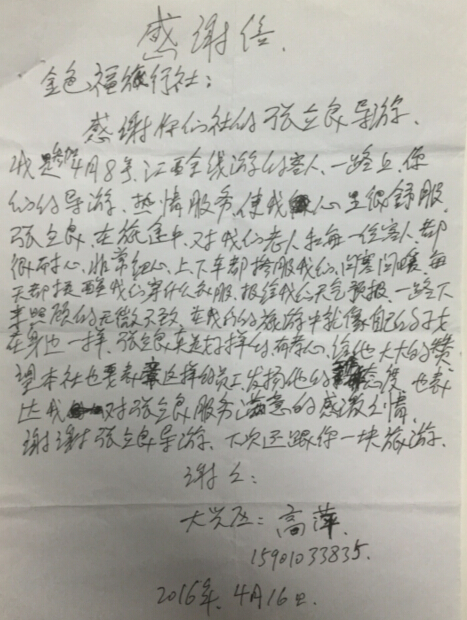 感谢信.
金色福旅行社:
感谢你们社的张立良导游.
我是参加4月8号江西全线游的客人、一路上、你
们的导游、热情服务、使我心里很舒服.
张立良、在旅途中、对我们老人和每一位客人、都
很耐心、非常细心、上、下车都搀服我们、问寒问暖、每
天都提醒我们穿什么衣服、报给我们天气预报、一路下
来照顾的无微不致、在我们的旅游中就像自己的子女
在身边一样、张立良真是好样的有孝心、给他大大的赞
望本社也要表章这样的员工发扬他的态度、也表
达我对张立良服务满意的感激之情.
谢谢张立良导游、下次还跟你一块旅游.
谢人:
大兴区:高萍.
15901033835.
2016年.4月16日.